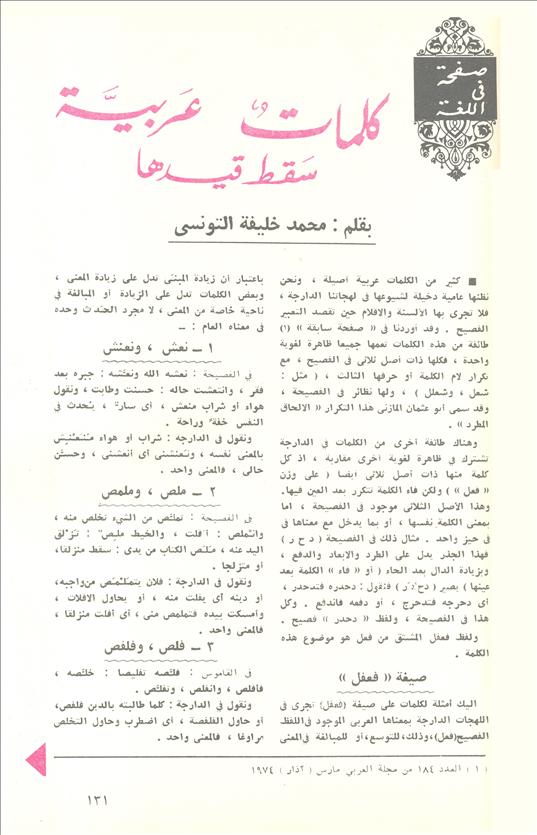 صفحة
في
اللغة
كلمات عربية
سقط قيدها
بقلم : محمد خليفة التونسى
■ كثير من الكلمات عربية أصيلة ، ونحن
نظنها عامية دخيلة لشيوعها فى لهجاتنا الدارجة ،
فلا تجرى بها الالسنة والاقلام حين نقصد التعبير
الفصيح . وقد أوردنا فى « صفحة سابقة » (١)
طائفة من هذه الكلمات تعمها جميعا ظاهرة لغوية
واحدة ، فكلها ذات أصل ثلاثى فى الفصيح ، مع
تكرار لام الكلمة أو حرفها الثالث ، ( مثل :
شعل ، وشعلل ) ، ولها نظائر فى الفصيحة ،
وقد سمى أبو عثمان المازنى هذا التكرار « الالحاق
المطرد » .
وهناك طائفة أخرى من الكلمات فى الدارجة
تشترك فى ظاهرة لغوية أخرى مقاربة ، اذ كل
كلمة منها ذات أصل ثلاثى ايضا ( على وزن
« فعل » ) ولكن فاء الكلمة تتكرر بعد العين فيها.
وهذا الأصل الثلاثى موجود فى الفصيحة ، اما
بمعنى الكلمة نفسها ، أو بما يدخل مع معناها فى
فى حيز واحد . مثال ذلك فى الفصيحة ( د ح ر )
فهذا الجذر يدل على الطرد والابعاد والدفع ،
وبزيادة الدال بعد الحاء ( أو « فاء » الكلمة بعد
عينها ) يصير ( دحدر ) فنقول : دحدره فتدحدر ،
أى دحرجه فتدحرج ، أو دفعه فاندفع . وكل
هذا فى الفصيحة ، ولفظ « دحدر » فصيح .
ولفظ فعفل المشتق من فعل هو موضوع هذه
الكلمة .
صيغة « فعفل »
اليك أمثلة لكلمات على صيغة (فعفل) تجرى فى
اللهجات الدارجة بمعناها العربى الموجود فى اللفظ
الفصيح (فعل) ، وذلك، للتوسع، أو للمبالغة فى المعنى
باعتبار أن زيادة المبنى تدل على زيادة المعنى ،
وبعض الكلمات تدل على الزيادة أو المبالغة فى
ناحية خاصة من المعنى ، لا مجرد الحدث وحده
فى معناه العام : ـ
١ ـ نعش ، ونعنش
فى الفصيحة : نعشه الله ونعشه : جبره بعد
فقر ، وانتعشت حاله : حسنت وطابت ، ونقول
هواء أو شراب منعش ، أى سار ، يحدث فى
النفس خفة وراحة .
ونقول فى الدارجة : شراب أو هواء منعنش
بالمعنى نفسه ، وتنعنشنى أى أنعشنى ، وحسن
حالى ، فالمعنى واحد .
٢ ـ ملص ، وملمص
فى الفصيحة : تملص من الشىء تخلص منه ،
وانملص : أفلت ، والخيط ملص : تزلق
اليد عنه ، ملص الكتاب من يدى : سقط منزلقا،
أو منزلجا .
ونقول فى الدارجة : فلان يتملمص من واجبه،
أو دينه أى يفلت منه ، أو يحاول الافلات ،
وأمسكت بيده فتملمص منى ، أى أفلت منزلقا ،
فالمعنى واحد .
٣ ـ فلص ، وفلفص
فى القاموس : فلصه تفليصا : خلصه ،
فأفلص ، وانفلص ، وتفلص .
ونقول فى الدارجة : كلما طالبته بالدين فلفص،
أو حاول الفلفصة ، أى اضطرب وحاول التخلص
مراوغا ، فالمعنى واحد .
( ١ ) العدد ١٨٤ من مجلة العربي مارس ( آذار ) ١٩٧٤
١٣١